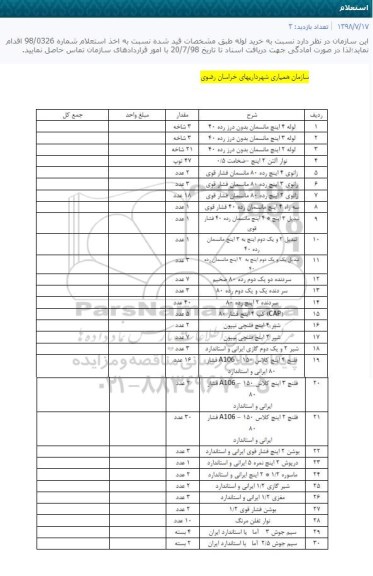 استعلام
۱۳۹۸/۷/۱۷ | تعداد بازدید: ۳
این سازمان در نظر دارد نسبت به خرید لوله طبق مشخصات قید شده نسبت به اخذ استعلام شماره 98/0326 اقدام
نماید؛لذا در صورت آمادگی جهت دریافت اسناد تا تاریخ 20/7/98 با امور قراردادهای سازمان تماس حاصل نمایید.
سازمان همیاری شهرداریهای خراسان رضوی
ردیف شرح مقدار مبلغ واحد جمع کل
۱ لوله ۴ اینچ مانسمان بدون درز رده ۴۰ ۳ شاخه
۲ لوله ۳ اینچ مانسمان بدون درز رده ۴۰ ۳ شاخه
۳ لوله ۲ اینچ مانسمان بدون درز رده ۴۰ ۲۱ شاخه
۴ نوار آلتن ۲ اینچ -ضخامت ۰/۵ ۴۷ توپ
۵ زانوی ۴ اینچ رده ۸۰ مانسمان فشار قوی ۲ عدد
۶ زانوی ۳ اینچ رده ۸۰ مانسمان فشار قوی ۳ عدد
۷ زانوی ۲ اینچ رده ۸۰ مانسمان فشار قوی ۱۸ عدد
۸ سه راه ۴ اینچ مانسمان رده ۴۰ فشار قوی ۱ عدد
۹ تبدیل ۳ اینچ * ۴ اینچ مانسمان رده ۴۰ فشار ۱ عدد
قوی
۱۰ تبدیل ۲ و یک دوم اینچ به ۳ اینچ مانسمان ۱ عدد
رده ۴۰
۱۱ تبدیل یک و یک دوم اینچ به ۲ اینچ مانسمان رده ۳ عدد
۴۰
۱۲ سردنده دو یک دوم رده ۸۰ ضخیم ۷ عدد
۱۳ سر دنده یک و یک دوم رده ۸۰ ۳ عدد
۱۴ سردنده ۲ اینچ رده ۸۰ ۴۰ عدد
۱۵ (CAP) کپ ۴ اینچ فشار ۸۰ ۵ عدد
۱۶ شیر ۴ اینچ فلنجی سیون ۲ عدد
۱۷ شیر ۳ اینچ فلنجی سیون ۷ عدد
۱۸ شیر ۲ و یک دوم گازی ایرانی و استاندارد ۳ عدد
۱۹ فلنچ ۴ اینچ کلاس ۱۵۰ - A106 فشار ۱۶ عدد
۸۰ ایرانی و استاندارد
۲۰ فلنچ ۳ اینچ کلاس ۱۵۰ - A106 فشار
۸۰
ایرانی و استاندارد
۲۱ فلنچ ۲ اینچ کلاس ۱۵۰ - A106 فشار ۳۰ عدد
۸۰
ایرانی و استاندارد
۲۲ بوشن ۲ اینچ فشار قوی ایرانی و استاندارد ۳ عدد
۲۳ درپوش ۲ اینچ نمره ۵ ایرانی و استاندارد ۱ عدد
۲۴ ماسوره ۱/۲ * ۲ اینچ ایرانی و استاندارد ۲ عدد
۲۵ شیر گازی ۱/۲ ایرانی و استاندارد ۲ عدد
۲۶ مغزی ۱/۲ ایرانی و استاندارد ۳ عدد
۲۷ بوشن فشار قوی ۱/۲ ۲ عدد
۲۸ نوار تفلن مرنگ ۱۰ عدد
۲۹ سیم جوش ۳ آما با استاندارد ایران ۴ بسته
۳۰ سیم جوش ۲/۵ آما با استاندارد ایران ۲ بسته
ParsNamad
۰۲۱-۸۸۳۴۹۶۷۰-۵